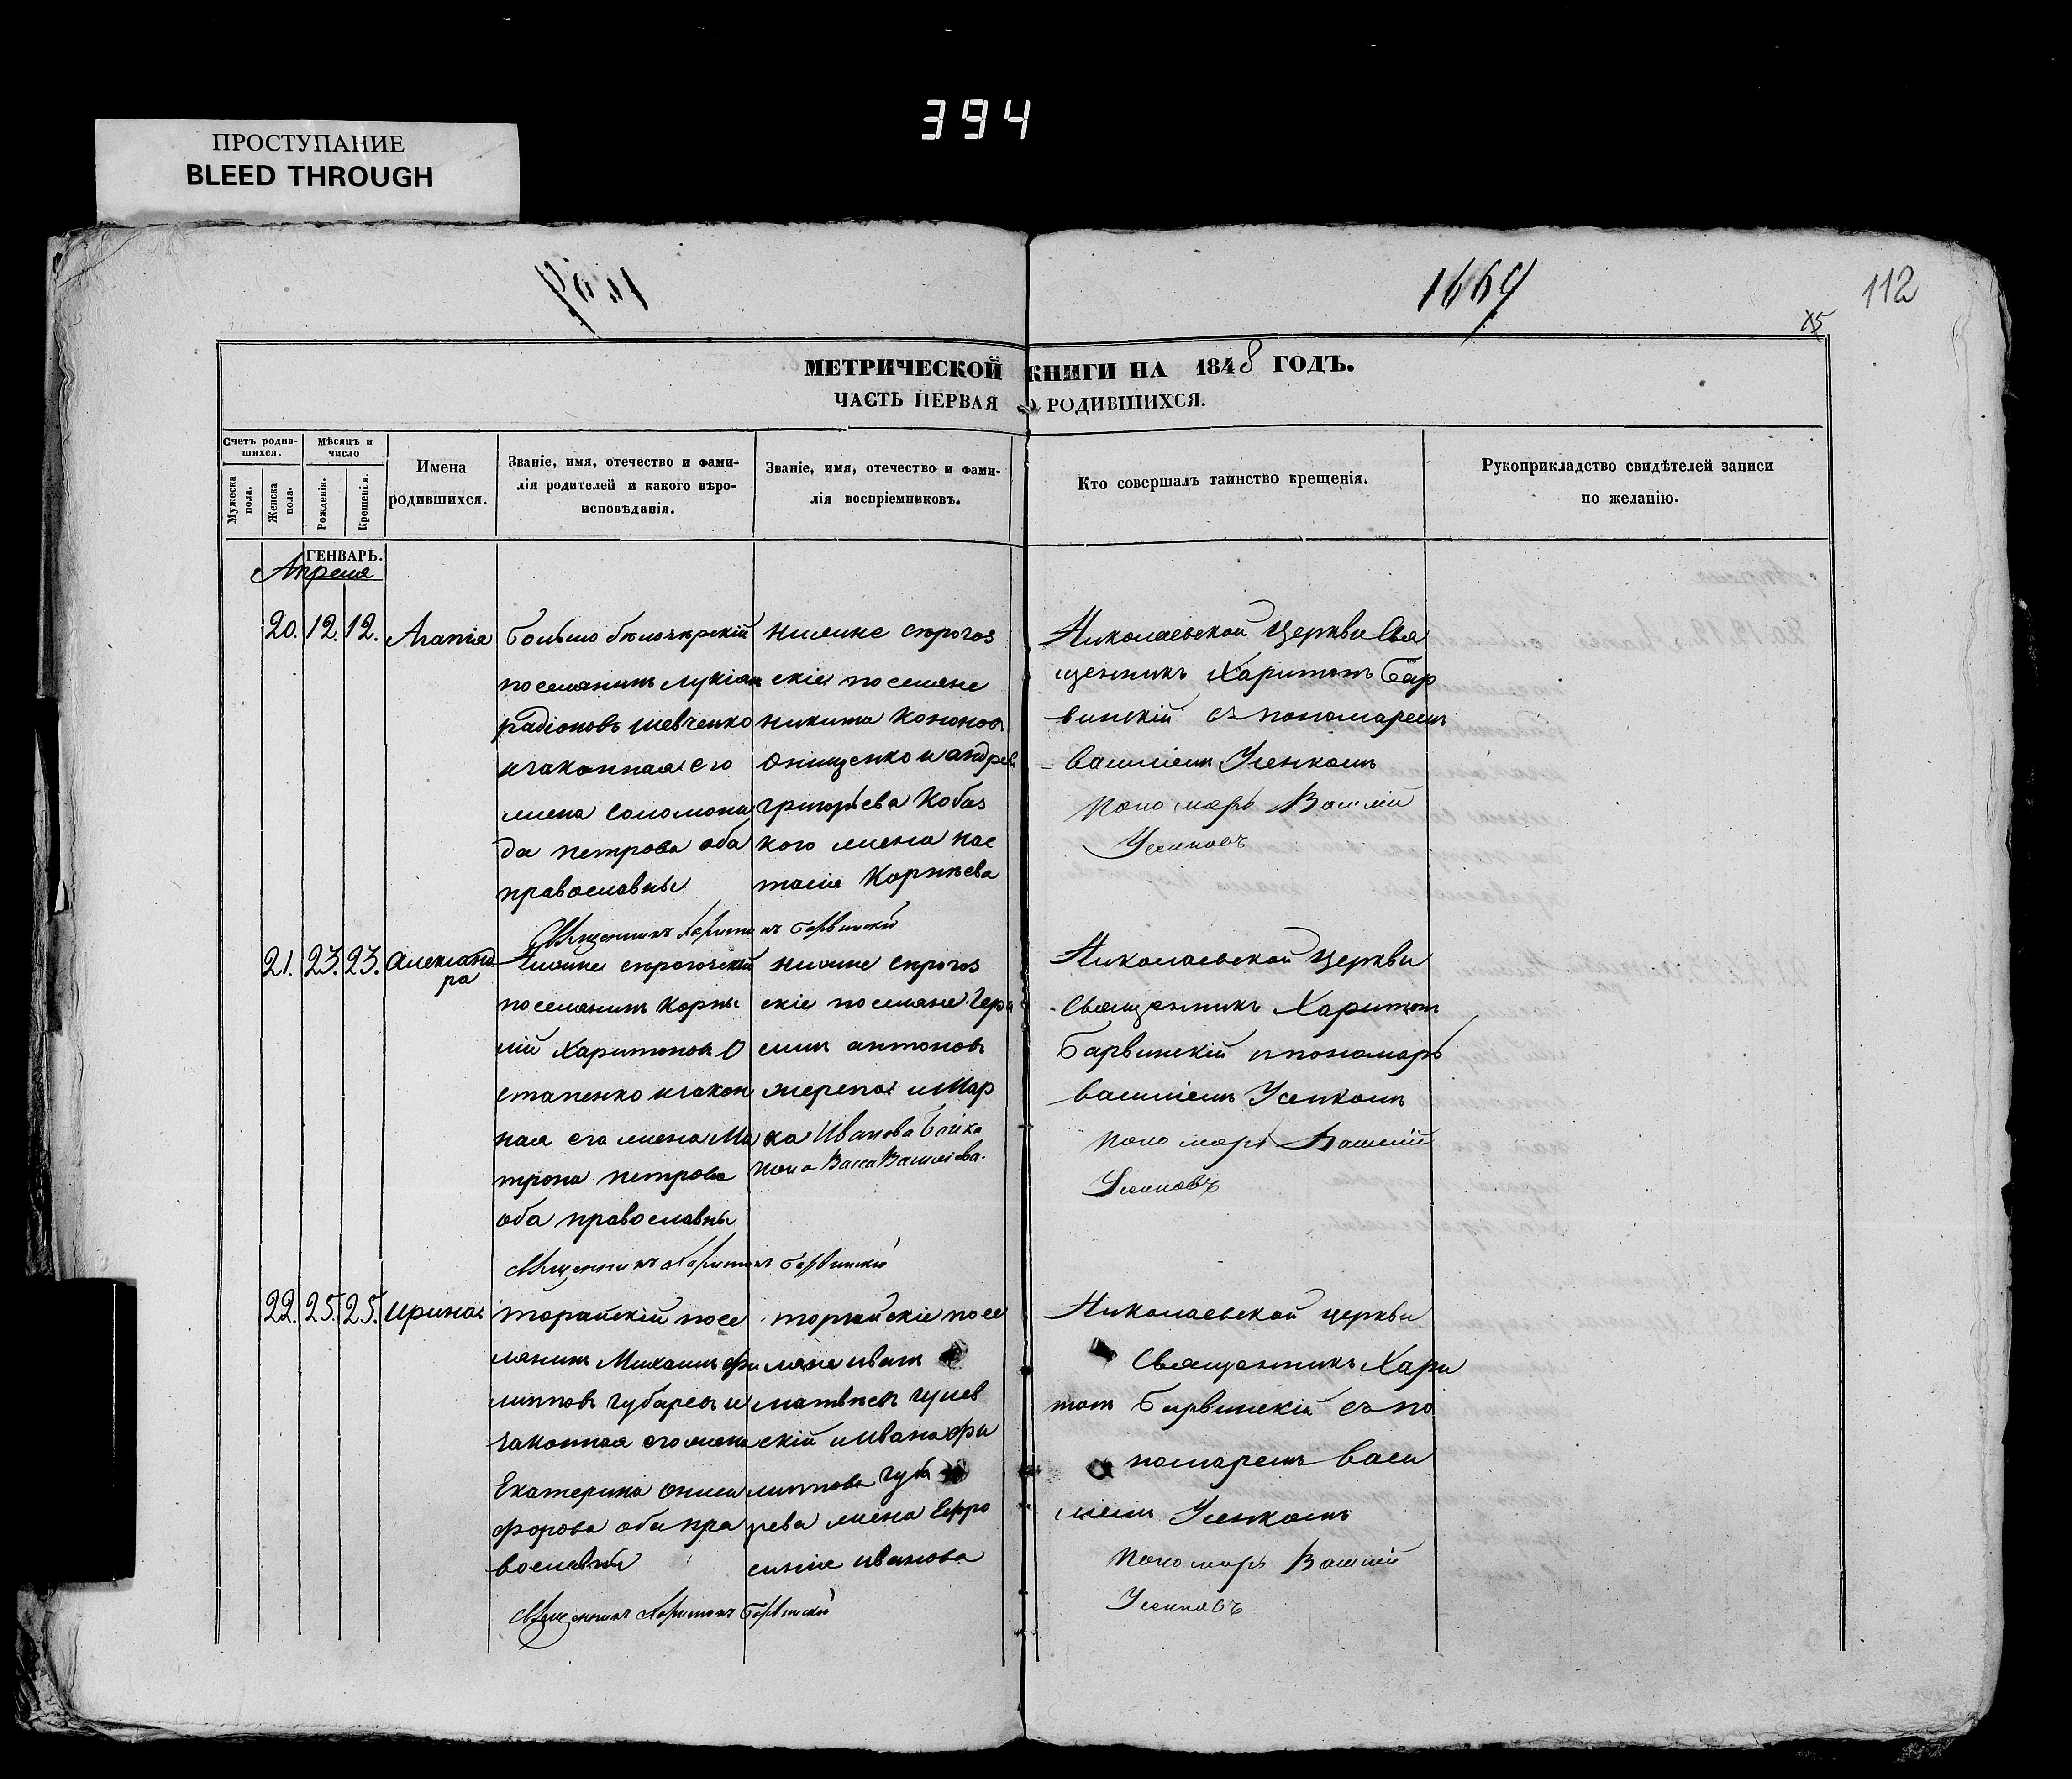 394
ПРОСТУПАНИЕ
BLEED THROUGH
1669
112
15
МЕТРИЧЕСКОЙ КНИГИ НА 1848 ГОДЪ.
ЧАСТЬ ПЕРВАЯ О РОДИВШИХСЯ.
Счетъ родив-
шихся.
Мужеска
пола.
Женска
пола.
Мѣсяцъ и
число
Рожденія.
Крещенія.
Имена
родившихся.
Званіе, имя, отечество и фами-
лія родителей и какого вѣро-
исповѣданія.
Званіе, имя, отечество и фами-
лія воспріемниковъ.
Кто совершалъ таинство крещенія.
Рукоприкладство свидѣтелей записи
по желанію.
ГЕНВАРЬ.
Апреля
20. 12. 12.
Агапія
Большо белочерскій
поселянинъ лукіян
радіоновъ шевченко
изаконная его
жена соломони
да петрова оба
православны
нижне серогоз
скіе поселяне
никита кононов
Онищенко и андрея
григорьева Кобаз
кого жена нас
тасія Корніева
Николаевской церкви Свя
щенникъ Харитонъ Бар
винскій съ пономаремъ
василіемъ Усенкомъ
Пономарь Василій
Усенковъ
Священникъ Харитонъ Барвинскій
21. 23. 23.
Александ
ра
Нижне серогозскій
поселянинъ Корни
лій Харитоновъ О
стапенко изакон
ная его жена Ма
трона петрова
оба православны
нижне серогоз
скіе поселяне Гера
симъ антоновъ
черепа и Мар
ка Иванова Бойка
жена Васса Василіева.
Николаевской церкви
Священникъ Харитон
Барвинскій съ пономарь
василіемъ Усенкомъ
Пономарь Василій
Усенковъ
Священникъ Харитонъ Барвинскій
22. 25. 25.
Ирина
торгайскій посе
лянинъ Михаилъ фи
липповъ губаревъ и
законная его жена
Екатерина Ониси
форова оба пра
вославны
торгайскіе посе
ляне иванъ
матвіевъ
скій и ивана фи
липпова губа
рева жена Ефро
синія иванова
Николаевской церкви
Священникъ Хари
тонъ Барвинскій съ по
номаремъ васи
ліемъ Усенкомъ
Пономарь Василій
Усенковъ
Священникъ Харитонъ Барвинскій